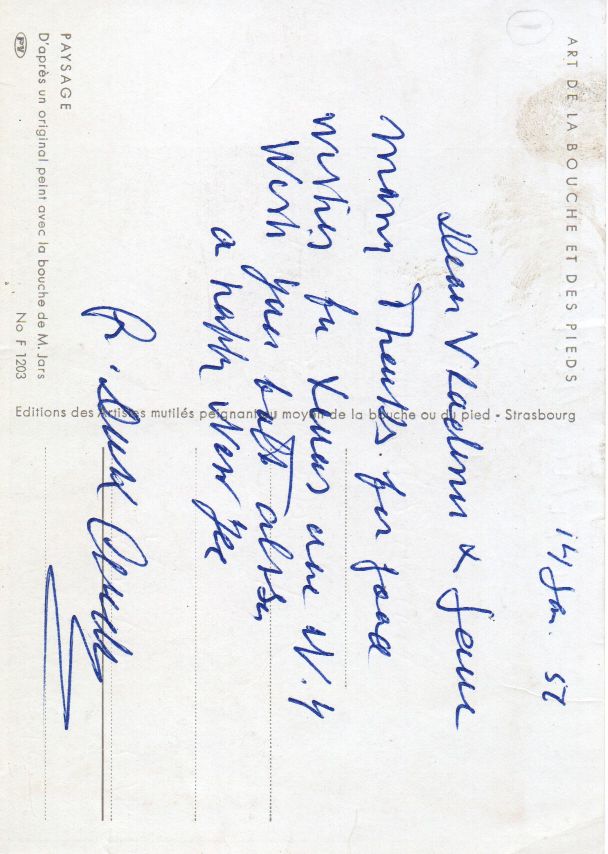 ART DE LA BOUCHE ET DES PIEDS
14 Jan.
Dear Vladimir &
many Thanks for good
wishes for Xmas and N.Y
Wish you both also
a happy New
R.
PAYSAGE
D'après un original peint avec la bouche de M. Jars
No F 1203
PV
Editions des Artistes mutilés peignant au moyen de la bouche ou du pied - Strasbourg